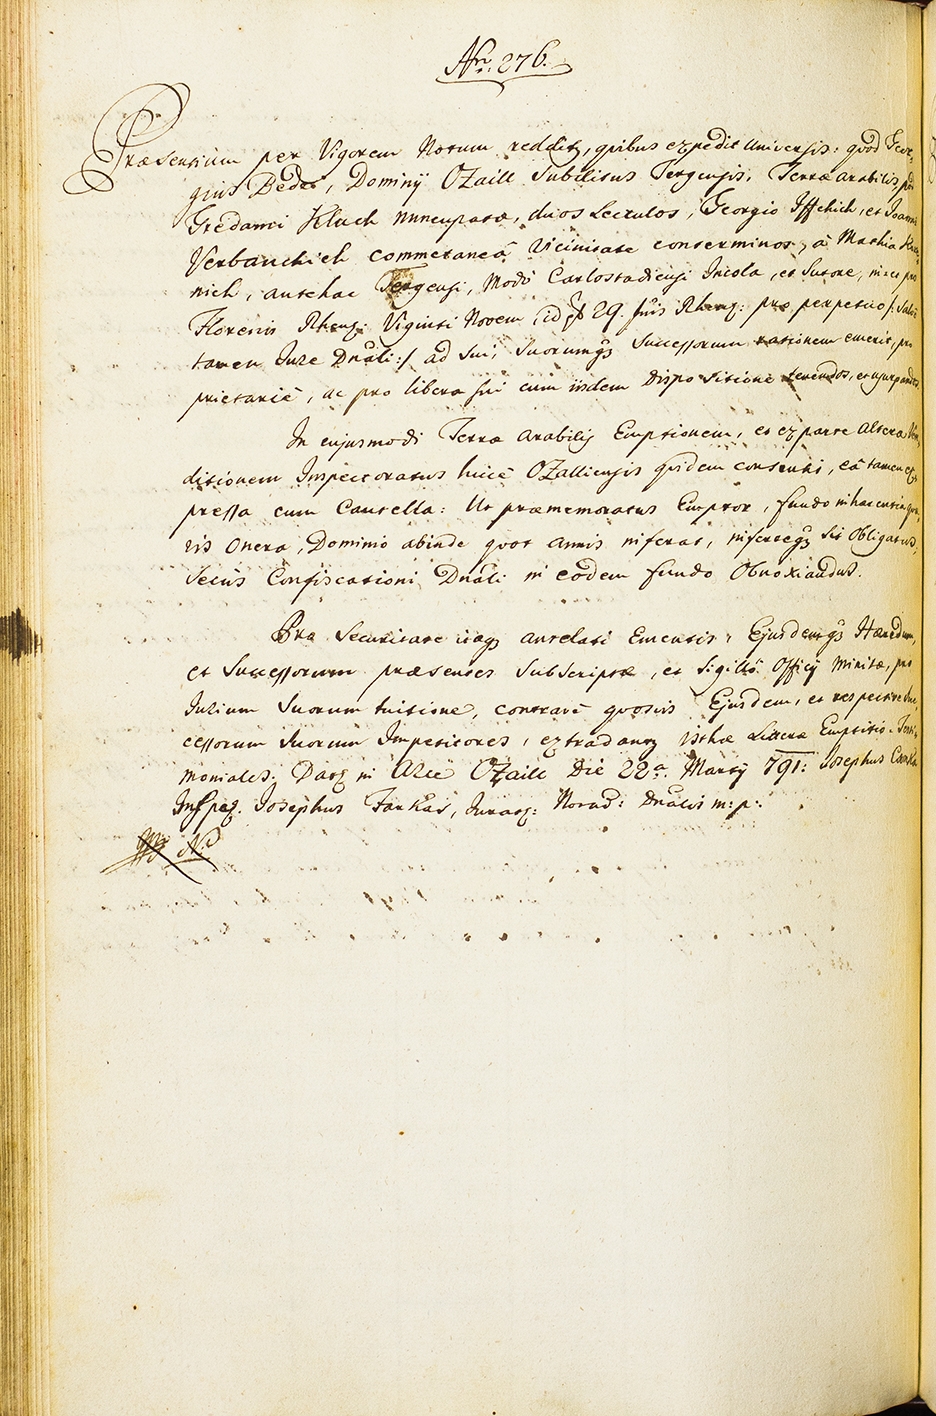 Nr: 276.
Præsentium per Vigorem Notum redditz, quibus expedit Universis: quod Geor-
gius Bedes, Dominij OZaill Subditus Tergensis, Terræ arabilis, pod
Gredanci Kluch nuncupatæ, duos Lectulos, Georgio Iffchich, et Joanni
Verbanchich commetaneâ Vicinitate conterminos, à Mathia
nich, antehac Tergensi, Modò Carlostadiensi Incola, et Sutore, in et pro
Florenis Rhenz: Viginti Novem, id est 29. fnis Rhenz: pro perpetuo /: salvo
tamen Jure Dnali :/ ad sui, suorumqs Successorum rationem emerit, pro
prietariè, ac pro libera sui cum iisdem Dispositione tenendos, et usurpandos
In ejusmodi Terræ arabilis Emptionem, et ex parte altera Ven
ditionem Inspectoratus hicce OZalliensis quidem consensi, eâ tamen ex
pressa cum Cautella: Ut præmemoratus Emptor, fundo inhærentia
ris Onera, Dominio abinde quot annis inferat, inferreqs sit Obligatus,
secus Confiscationi Dnali in eodem fundo Obnoxiandus.
Pro Securitate itaqs antelati Ementis, Ejusdemqs Hæredum,
et Successorum præsentes Subscriptæ, et Sigillô Officij munitæ, pro
Jurium Suorum tuitione, contravè quosvis Ejusdem, et respective Suc
cessorum Suorum Impetitores, extradantz isthæ Litteræ Emptitio-Testi
moniales. Datz in Arce OZaill Die 22a. Martij 791: Josephus
Inspez. Josephus Farkas, Juratz: Notar: Dnalis m: p:.
N: